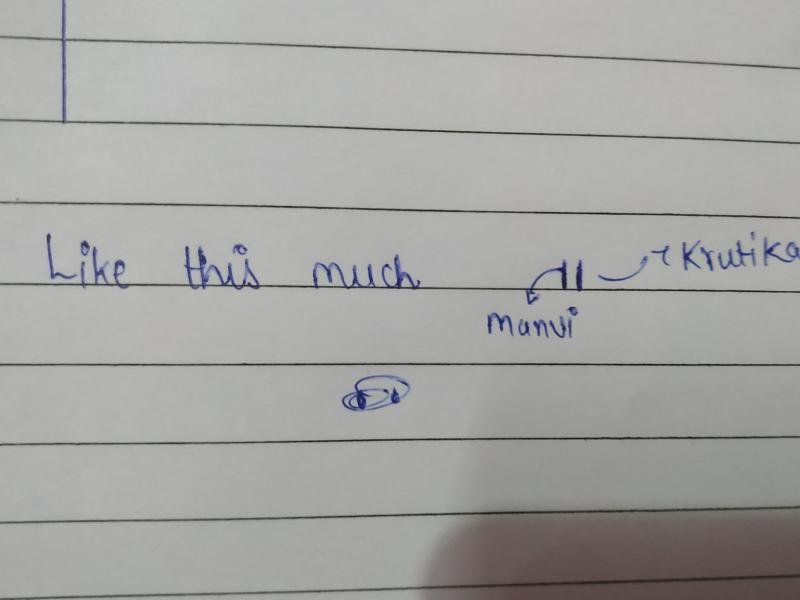 Like this much Krutika
Manvi